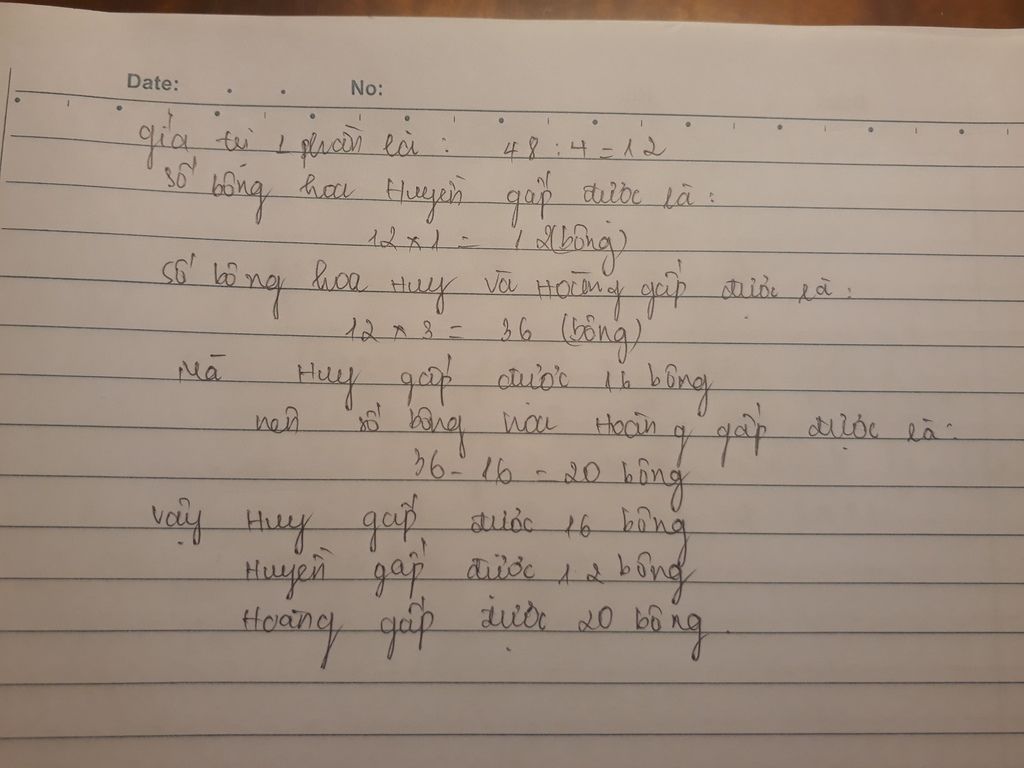 Date: No:
giá trị 1 phần là : 48 : 4 = 12
Số bông hoa Huyền gấp được là :
12 x 1 = 12 (bông)
Số bông hoa Huy và Hoàng gấp được là :
12 x 3 = 36 (bông)
Mà Huy gấp được 16 bông
nên số bông hoa Hoàng gấp được là :
36 - 16 = 20 bông
Vậy Huy gấp được 16 bông
Huyền gấp được 12 bông
Hoàng gấp được 20 bông.